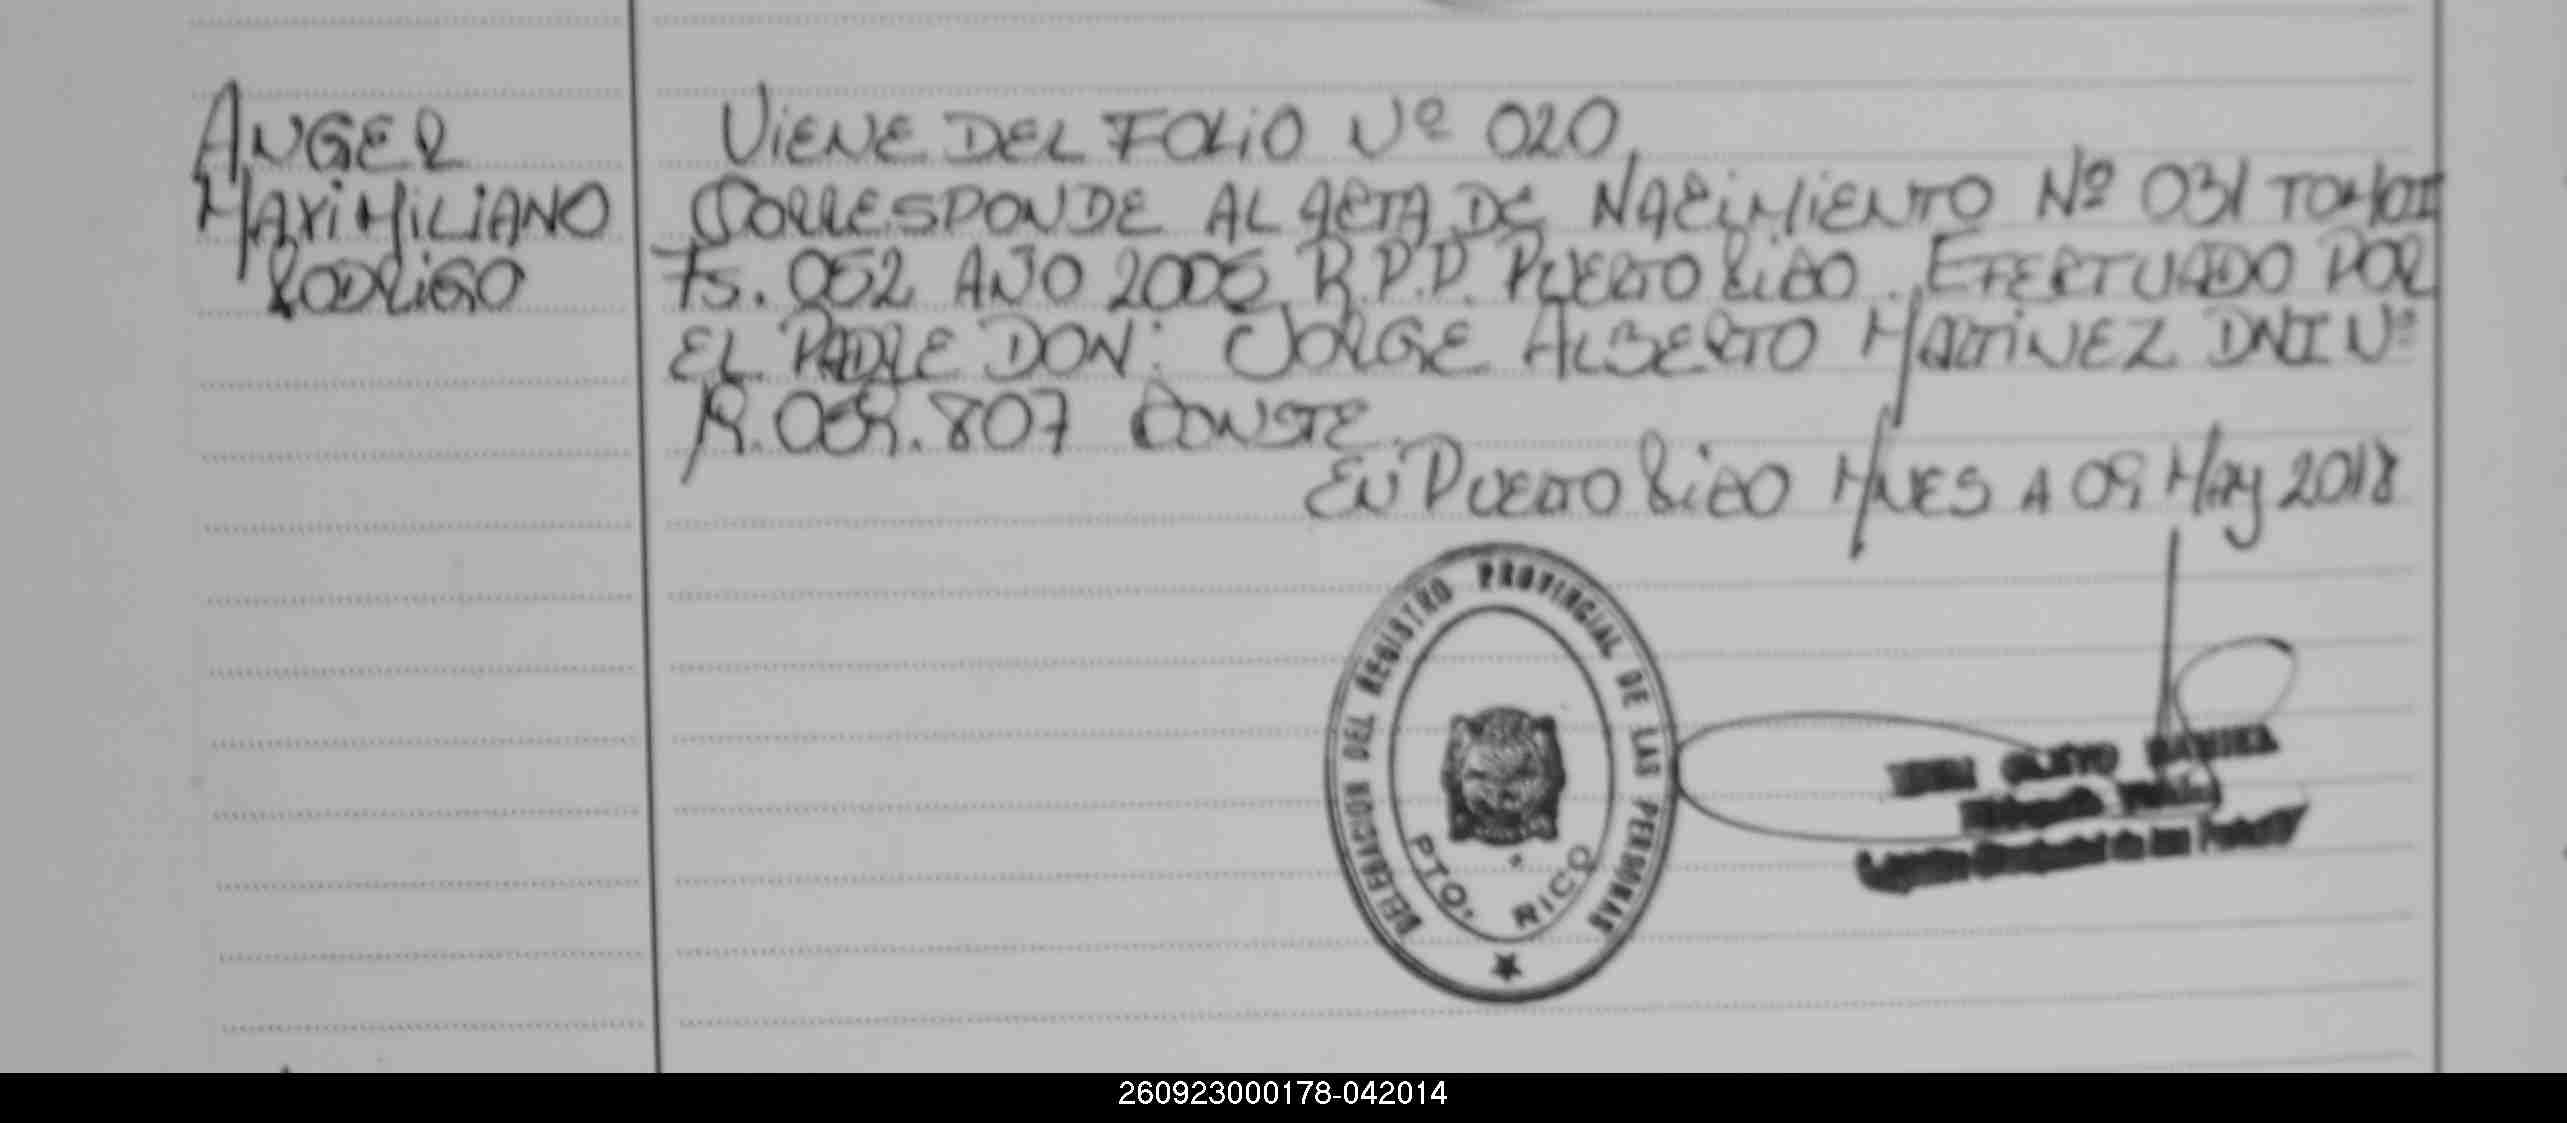 ANGER
MAXIMILIANO
RODRIGO
VIENE DEL FOLIO Nº 020
CORRESPONDE AL ACTA DE NACIMIENTO Nº 031 TOMO II
FS. 052 AÑO 2005 R.P.P. PUERTO RICO. EFECTUADO POR
EL PADRE DON: JORGE ALBERTO MARTINEZ DNI Nº
CONSTE.
EN PUERTO RICO MNES A 09 MAY 2018
DELEGACION DEL REGISTRO PROVINCIAL DE LAS PERSONAS
PTO. RICO
260923000178-042014